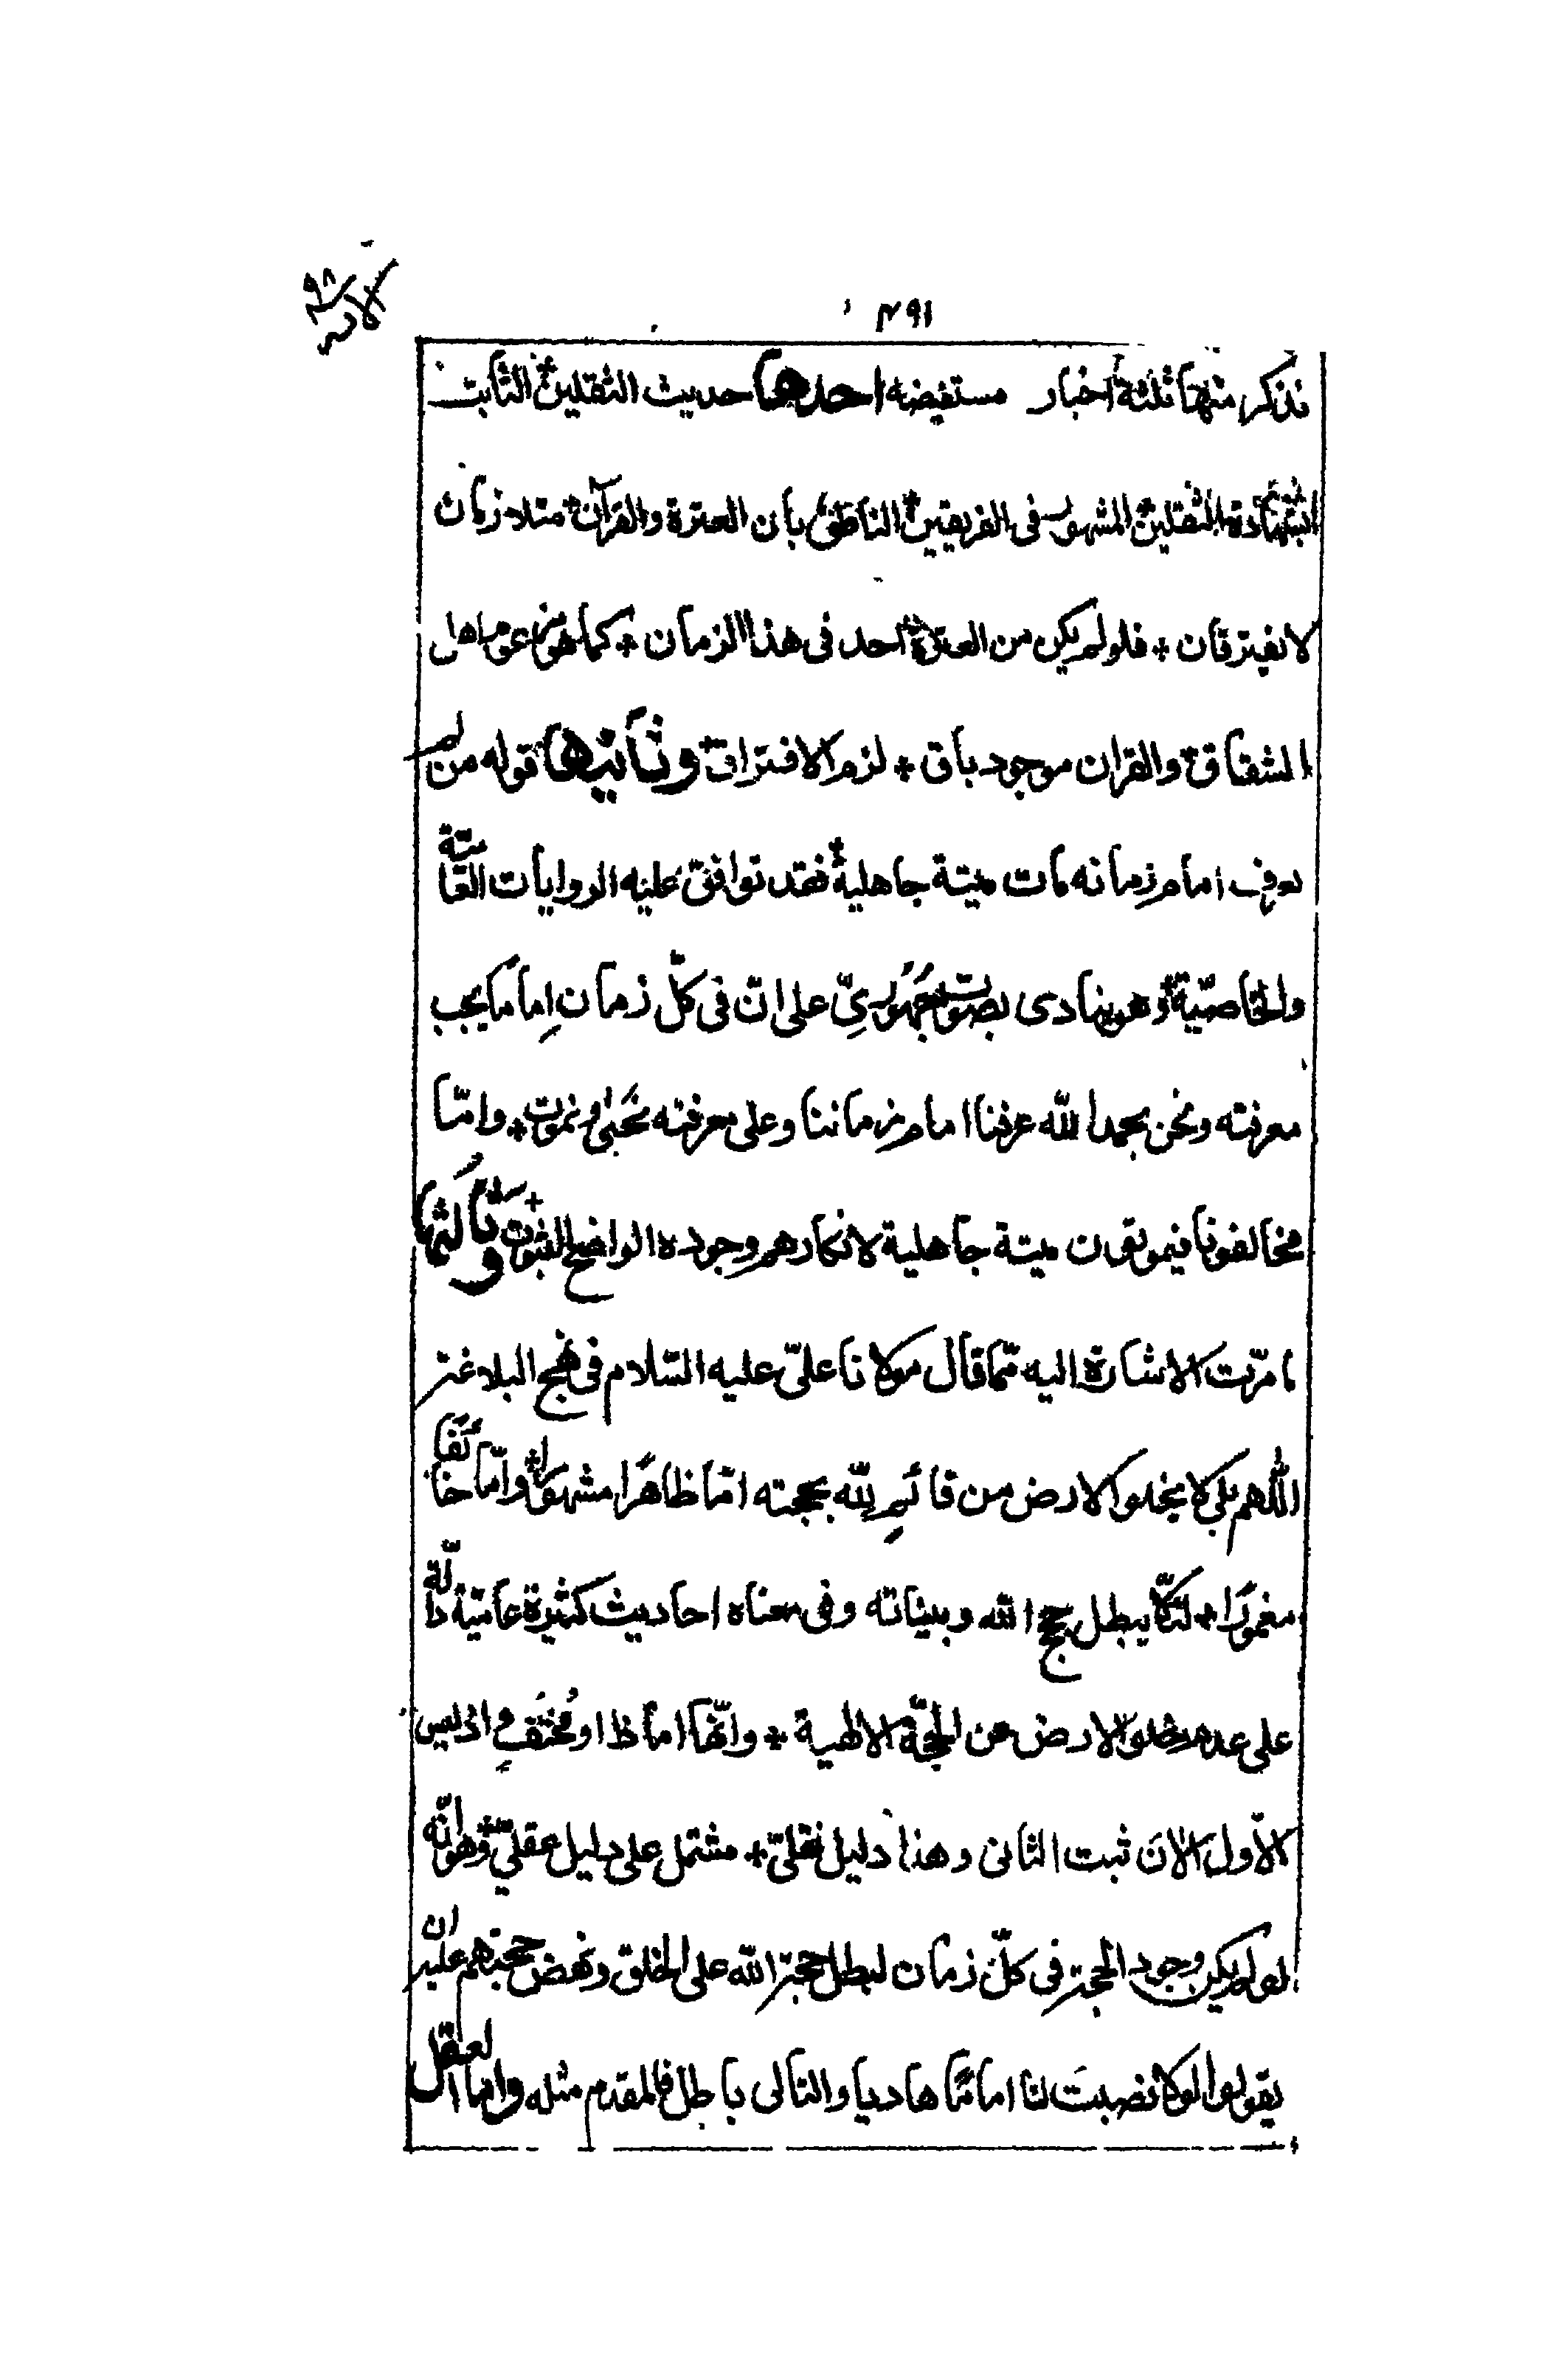 ٤٩١
نذكر منها ثلثة أخبار مستفيضه احدها حديث الثقلين * الثابت
بشهادة الثقلين * المشهور في الفريقين * الناطق بأن العترة والقرآن * متلازمان
لا يفترقان * فلو لم يكن من العترة احد في هذا الزمان * كما هو مزعوم اهل
الشقاق * والقران موجود باق * لزم الافتراق * وثانيها قوله من لم
يعرف امام زمانه مات ميتة جاهلية * فقد توافق عليه الروايات العامّية
والخاصّيّة * وهو ينادى بصوت جَهُورِيّ على انّ في كلّ زمان إمامًا يجب
معرفته ونحن بحمد الله عرفنا امام زماننا وعلى معرفته نَحيٰى ونموت * وامّا
مخالفونا فيموتون ميتة جاهلية لانكارهم وجوده الواضح الثبوت * وثالثها
ما مرّت الاشارة اليه ممّا قال مولانا علىّ عليه السّلام في نهج البلاغة
اللّهم بلى لا يخلوا الارض من قائمٍ لله بحجته امّا ظاهرًا مشهورًا * وامّا خائفًا
مغمورًا * لئلّا يبطل حجج الله وبيناته وفى معناه احاديث كثيرة عامّية دالّة
على عدم خلوّ الارض عن الحجّة الالهية * وانّها اما ظا او مُختَفٍ واذ ليس
الاّول الاٰن ثبت الثانى وهذا دليل نقلىّ * مشتمل على دليل عقلىّ * وهو انّه
لو لم يكن وجود الحجة في كلّ زمان لبطل حجة الله على الخلق ونهض حجتهم عليه ان
يقولوا لولا نصبتَ لنا امامًا هاديا والتالى باطل فالمقدم مثله واما العقل